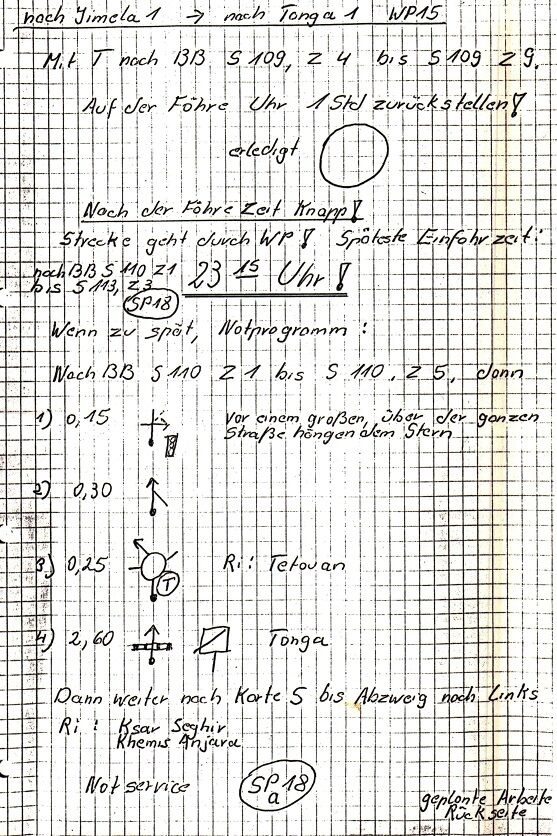 nach Jimela 1 → nach Tanga 1 WP15
Mit T nach BB S 109, Z 4 bis S 109 Z 9.
Auf der Fähre Uhr 1 Std zurückstellen!
erledigt
Nach der Fähre Zeit Knapp!
Strecke geht durch WP! Späteste Einfahrzeit:
nach BB S 110 Z1
bis S 113, Z 3 23 15 Uhr!
SP18
Wenn zu spät, Notprogramm:
Nach BB S 110 Z 1 bis S 110, Z 5, dann
1) 0,15 vor einem großen, über der ganzen
Straße hängendem Stern
2) 0,30
3) 0,25 Ri: Tetouan
T
4) 2,60 Tanga
Dann weiter nach Karte 5 bis Abzweig nach Links
Ri: Ksar Seghir
Khemis Anjara
Notservice SP18
a
geplante Arbeite
Rückseite